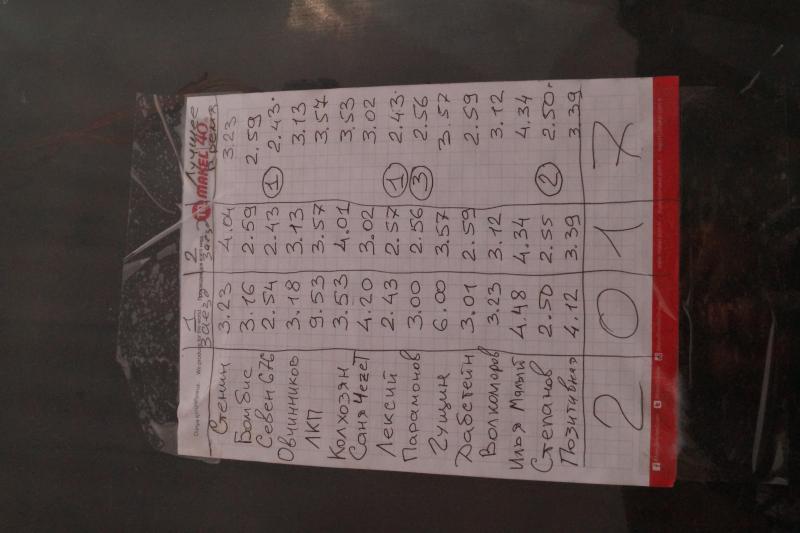 1 заезд 2 заезд Лучшее время
MAKEL 40
Стенин 3.23 4.04 3.23
Бомбис 3.16 2.59 2.59
Севен 676 2.54 2.43 1 2.43.
Овчинников 3.18 3.13 3.13
ЛКП 9.53 3.57 3.57
Колхозян 3.53 4.01 3.53
Саня Чезет 4.20 3.02 3.02
Лексий 2.43 2.57 1 2.43.
Парамонов 3.00 2.56 3 2.56
Гущин 6.00 3.57 3.57
Дабстейн 3.01 2.59 2.59
Волкоморов 3.23 3.12 3.12
Илья Малый 4.48 4.34 4.34
Степанов 2.50 2.55 2 2.50.
Позитивная 4.12 3.39 3.39
2 0 1 7